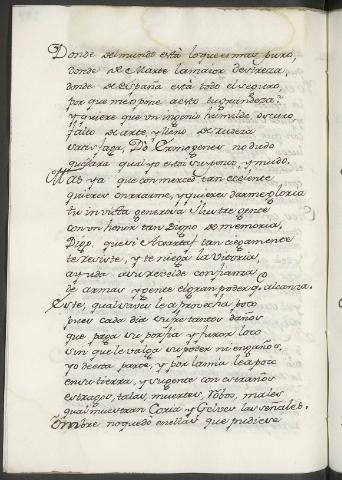 Donde del mundo está lo que es mas puro,
donde de Marte la maior destreza,
donde de españa está todo el seguro,
por que me opone a esto tu grandeza?
y quiere que un ingenio humilde, oscuro,
falto de arte, y lleno de rudeza
satisfaga, Do Ermogenes no dudo
quedara qual yo estoi suspenso, y mudo.
Mas ya que con merced tan excelente
quieres onrrarme, y quieres darme gloria
tu invicta generosa Ilustre gente
con un honor tan digno de memoria,
Digo, que si Acaxtaf tan ciegamente
te resiste, y te niega la Victoria,
ayuda a su rebelde confianza
de armas y gente el gran poder q alcanza.
Este, qual vives le aprovecha poco
pues cada dia sufre tantos daños
que paga su porfia y furor loco
sin que le valga su poder ni engaños,
yo desta parte, y por la mia le apoco
en su tierra, y su gente con estraños
estragos, talas, muertes, Robos, males
qual muestran Coria y Gelves las señales.
ombre no quedo en ellas que pudiese